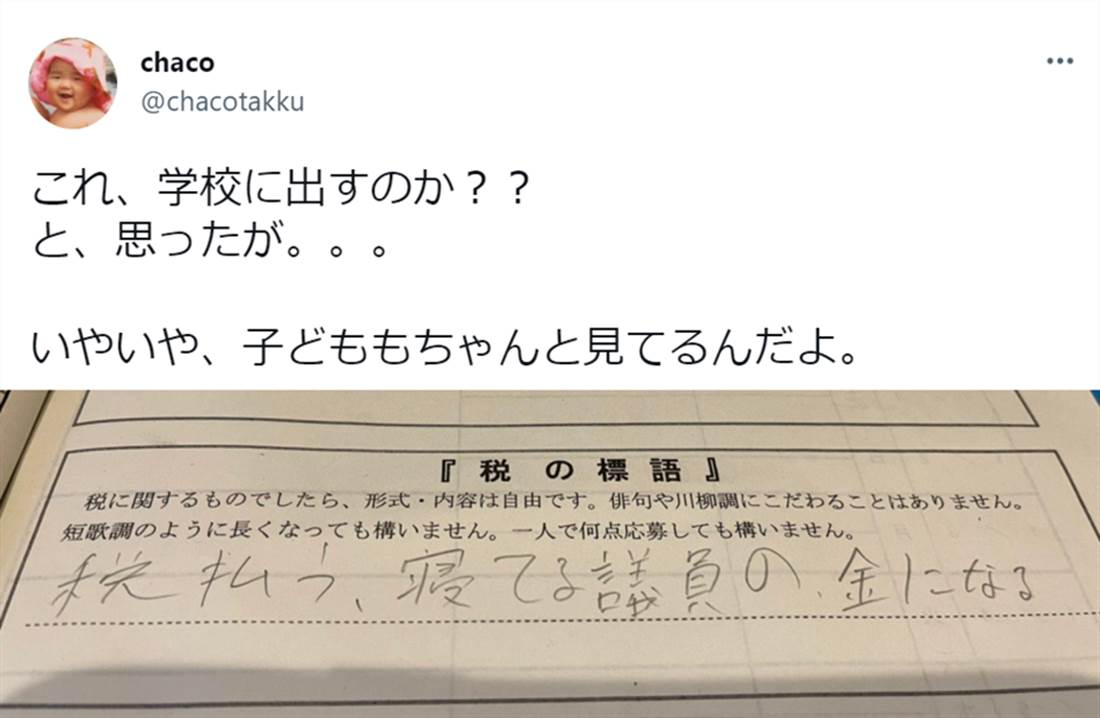 chaco
@chacotakku
これ、学校に出すのか？？
と、思ったが。。。
いやいや、子どももちゃんと見てるんだよ。
『税の標語』
税に関するものでしたら、形式・内容は自由です。俳句や川柳調にこだわることはありません。
短歌調のように長くなっても構いません。一人で何点応募しても構いません。
税払う、寝てる議員の、金になる